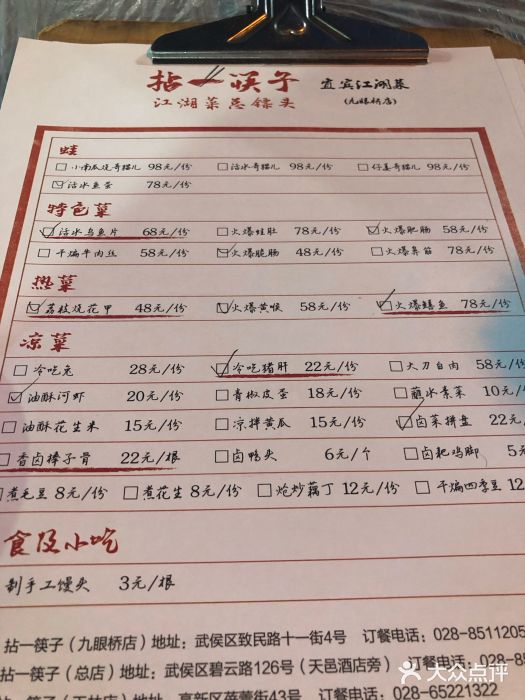 拈一筷子 宜宾江湖菜
江湖菜总镖头 (九眼桥店)
蛙
小南瓜烧哥猫儿 98元/份 活水哥猫儿 98元/份 仔姜哥猫儿 98元/份
活水鱼蛋 78元/份
特色菜
活水乌鱼片 68元/份 火爆蛙肚 78元/份 火爆肥肠 58元/份
干煸牛肉丝 58元/份 火爆脆肠 48元/份 火爆鼻筋 78元/份
热菜
荔枝烧花甲 48元/份 火爆黄喉 58元/份 火爆鳝鱼 78元/份
凉菜
冷吃兔 28元/份 冷吃猪肝 22元/份 大刀白肉 58元/份
油酥河虾 20元/份 青椒皮蛋 18元/份 蘸水素菜 10元/
油酥花生米 15元/份 凉拌黄瓜 15元/份 卤菜拼盘 22元/
香卤棒子骨 22元/根 卤鸭头 6元/个 卤耙鸡脚 5元
煮毛豆 8元/份 煮花生 8元/份 炝炒藕丁 12元/份 干煸四季豆 12
食及小吃
制手工馒头 3元/根
拈一筷子（九眼桥店）地址：武侯区致民路十一街4号 订餐电话：028-8511205
拈一筷子（总店）地址：武侯区碧云路126号（天邑酒店旁） 订餐电话：028-8
高新区蓓蕾街43号 订餐电话：028-65221322
大众点评